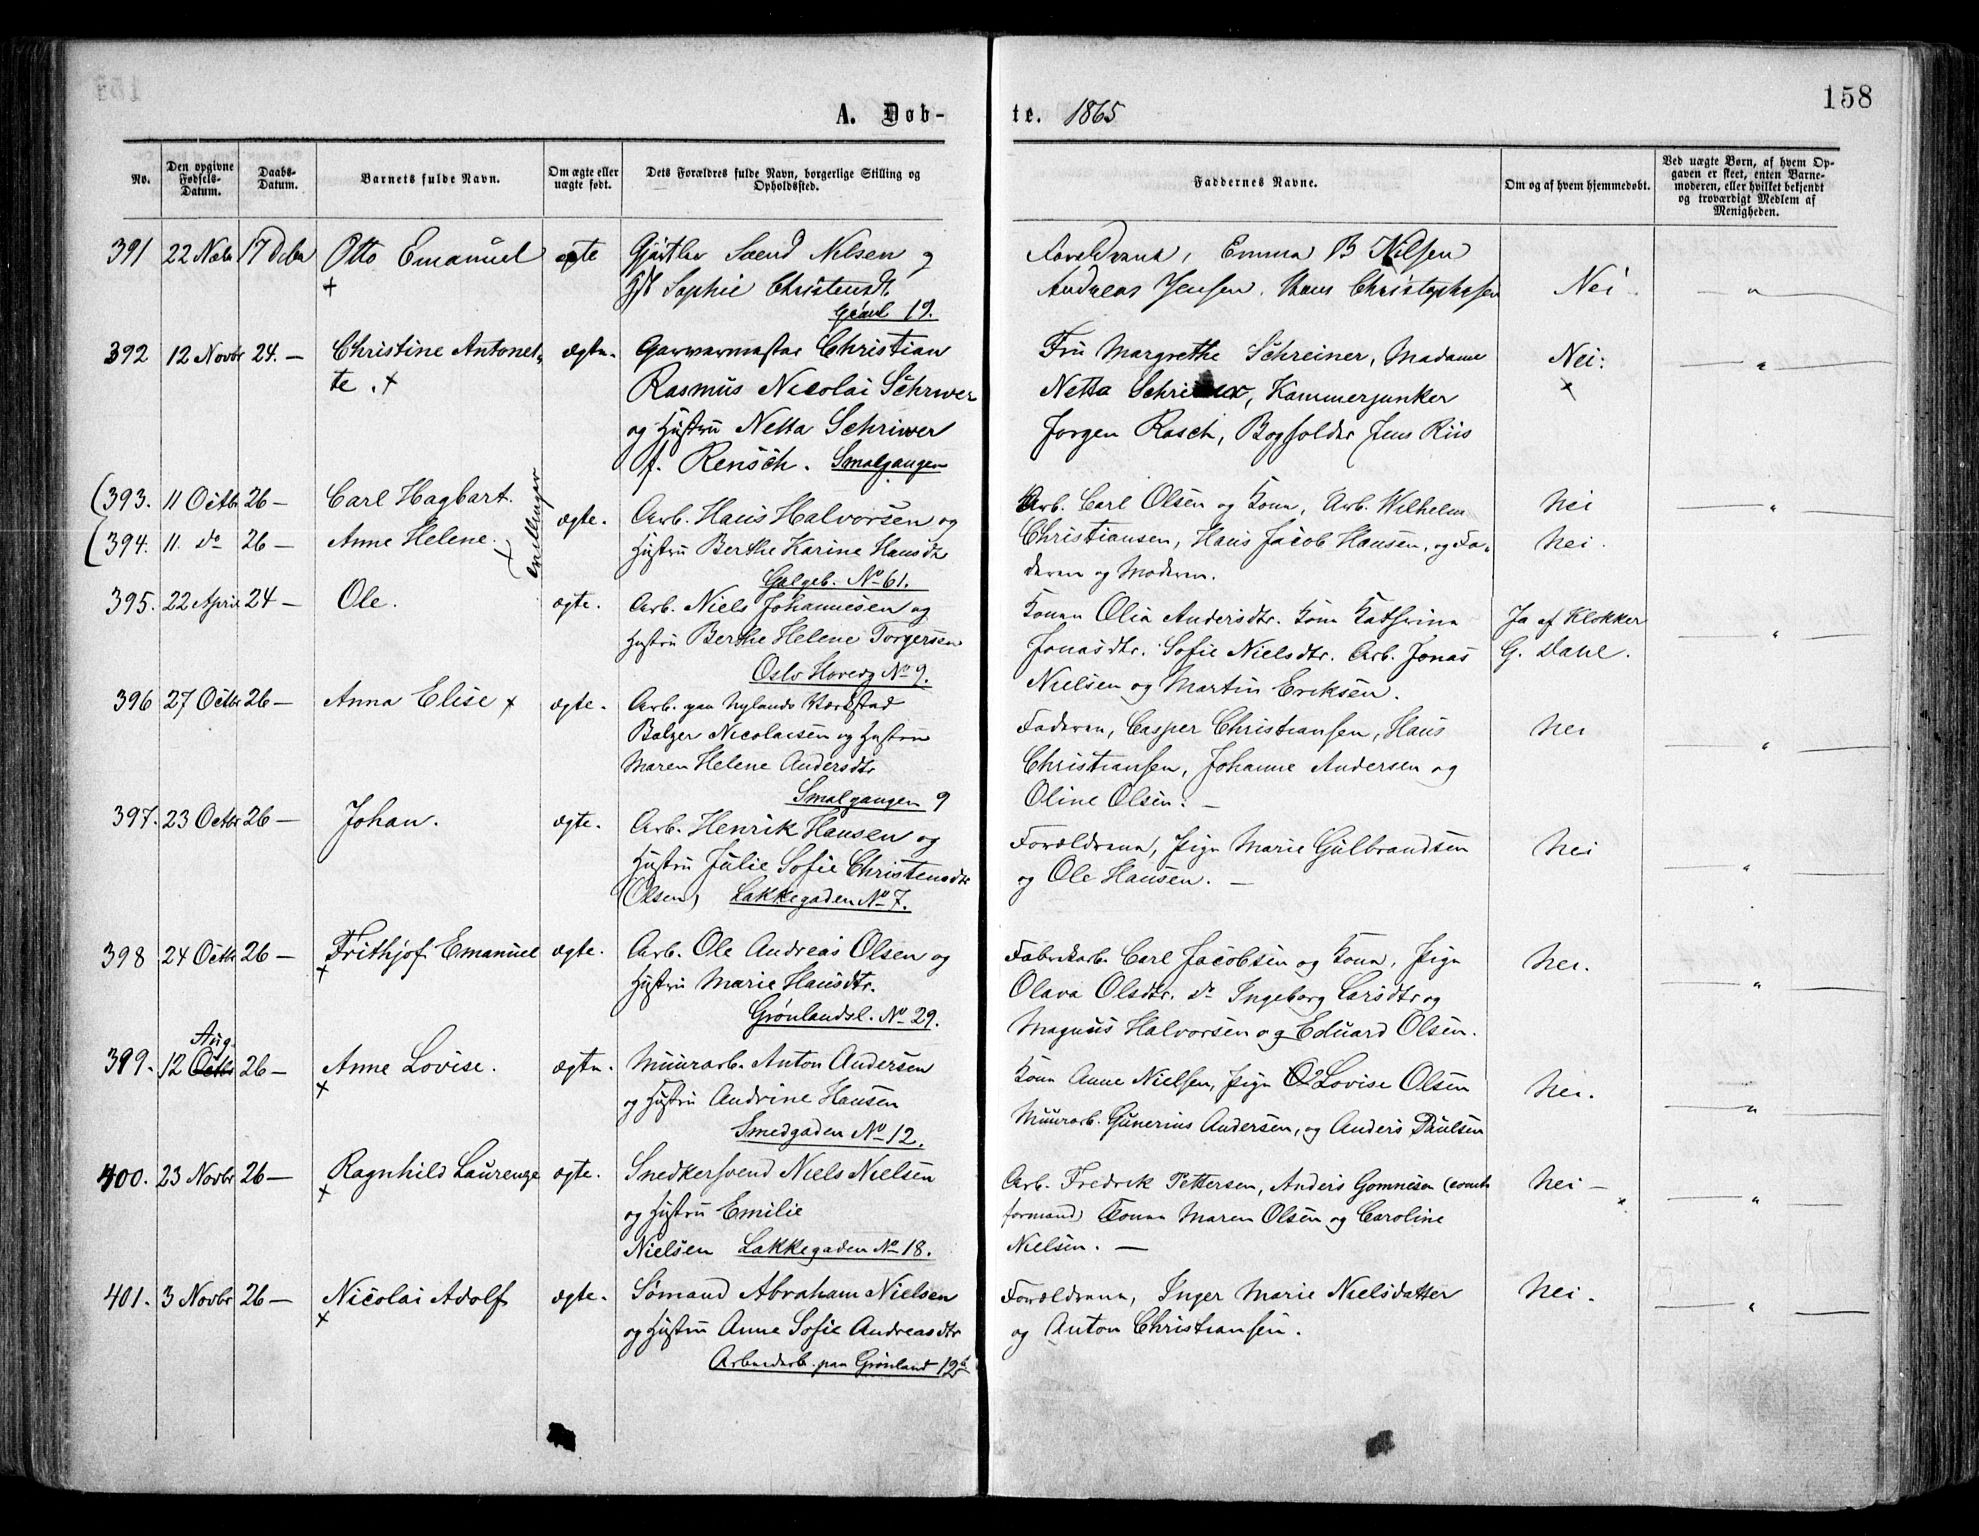 158
A. Døb-
te. 1865
No.
Den opgivne Fødsels-Datum.
Daabs-Datum.
Barnets fulde Navn.
Om ægte eller uægte født.
Dets Forældres fulde Navn, borgerlige Stilling og Opholdssted.
Faddernes Navne.
Om og af hvem hjemmedøbt.
Ved uægte Børn, af hvem Op-
gaven er skeet, enten Barne-
moderen, eller hvilket bekjendt
og troværdigt Medlem af
Menigheden.
391 22 17 Otto Emanuel ægte Nilsen og
Sophie Christensdt.
19.
Emma B Nilsen
Andreas Jensen. Hans Christophersen Nei
392 12 Novbr 24.— Christine Antonet-
te .+
ægte. Garvermester Christian
Rasmus Nicolai Schriwer
og Hustru Netta Schriwer
f. Rensch. Smalgangen
Fru Margrethe Schreiner, Madame Nei.
Netta Schriwer, Kammerjunker
Jørgen Rasch, Bogholder Jens Riis
393. 11 Octbr 26— Carl Hagbart.
394. 11. do 26— Anne Helene.
Tvillinger
ægte. Arb. Hans Halvorsen og
Hustru Berthe Karine Hansdtr
Galgeb. No 61.
Arb. Carl Olsen og Kone, Arb. Wilhelm Nei
Christiansen, Hans Jacob Hansen, og Fa- Nei.
deren og Moderen.
395. 22 April 24— Ole. ægte. Arb. Niels Johannesen og
Hustru Berthe Helene Torgersen
Oslo Hovedg No 9.
Konen Olia Andersdtr. Kone Kathrina Ja af Klokker
Jonasdtr. Sofie Nielsdtr. Arb. Jonas G. Dahl.
Nielsen og Martin Eriksen.
396 27 Octbr 26— Anna Elise + ægte. Arb. paa Nylands Værksted
Balzer Nicolaisen og Hustru
Maren Helene Andersdtr
Smalgangen 9
Faderen, Casper Christiansen, Hans Nei
Christiansen, Johanne Andersen og
Oline Olsen. —
397. 23 Octbr 26— Johan. ægte. Arb. Henrik Hansen og
Hustru Julie Sofie Christensdtr
(Olsen) Lakkegaden No 7.
Forældrene, Pige Marie Gulbrandsen Nei
og Ole Hansen. —
398 24 Octbr 26— Frithjof Emanuel ægte. Arb. Ole Andreas Olsen og
Hustru Marie Hansdtr.
Grønlandsl. No 29.
Fabrikarb. Carl Jacobsen og Kone, Pige Nei.
Olava Olsdtr. do Ingeborg Larsdtr og
Magnus Halvorsen og Eduard Olsen.
Aug.
399. 12 Octbr 26— Anne Lovise. ægte. Muurarb. Anton Andersen
og Hustru Andrine Hansen
Smedgaden No 12.
Kone Anne Nielsen, Pige Lovise Olsen Nei.
Muurarb. Gunerius Andersen, og Anders Paulsen
400. 23 Novbr 26— Ragnhild Laurenze ægte. Snedkersvend Niels Nielsen
og Hustru Emilie
Nielsen Lakkegaden No 18.
Arb. Fredrik Pettersen, Anders Gomnesen Nei —
formand) Konen Maren Olsen og Caroline
Nielsen. —
401. 3 Novbr 26— Nicolai Adolf ægte. Sømand Abraham Nielsen
og Hustru Anne Sofie Andreasdtr
Arbeiderb. paa Grønland 12
Forældrene, Inger Marie Nielsdatter Nei.
og Anton Christiansen.